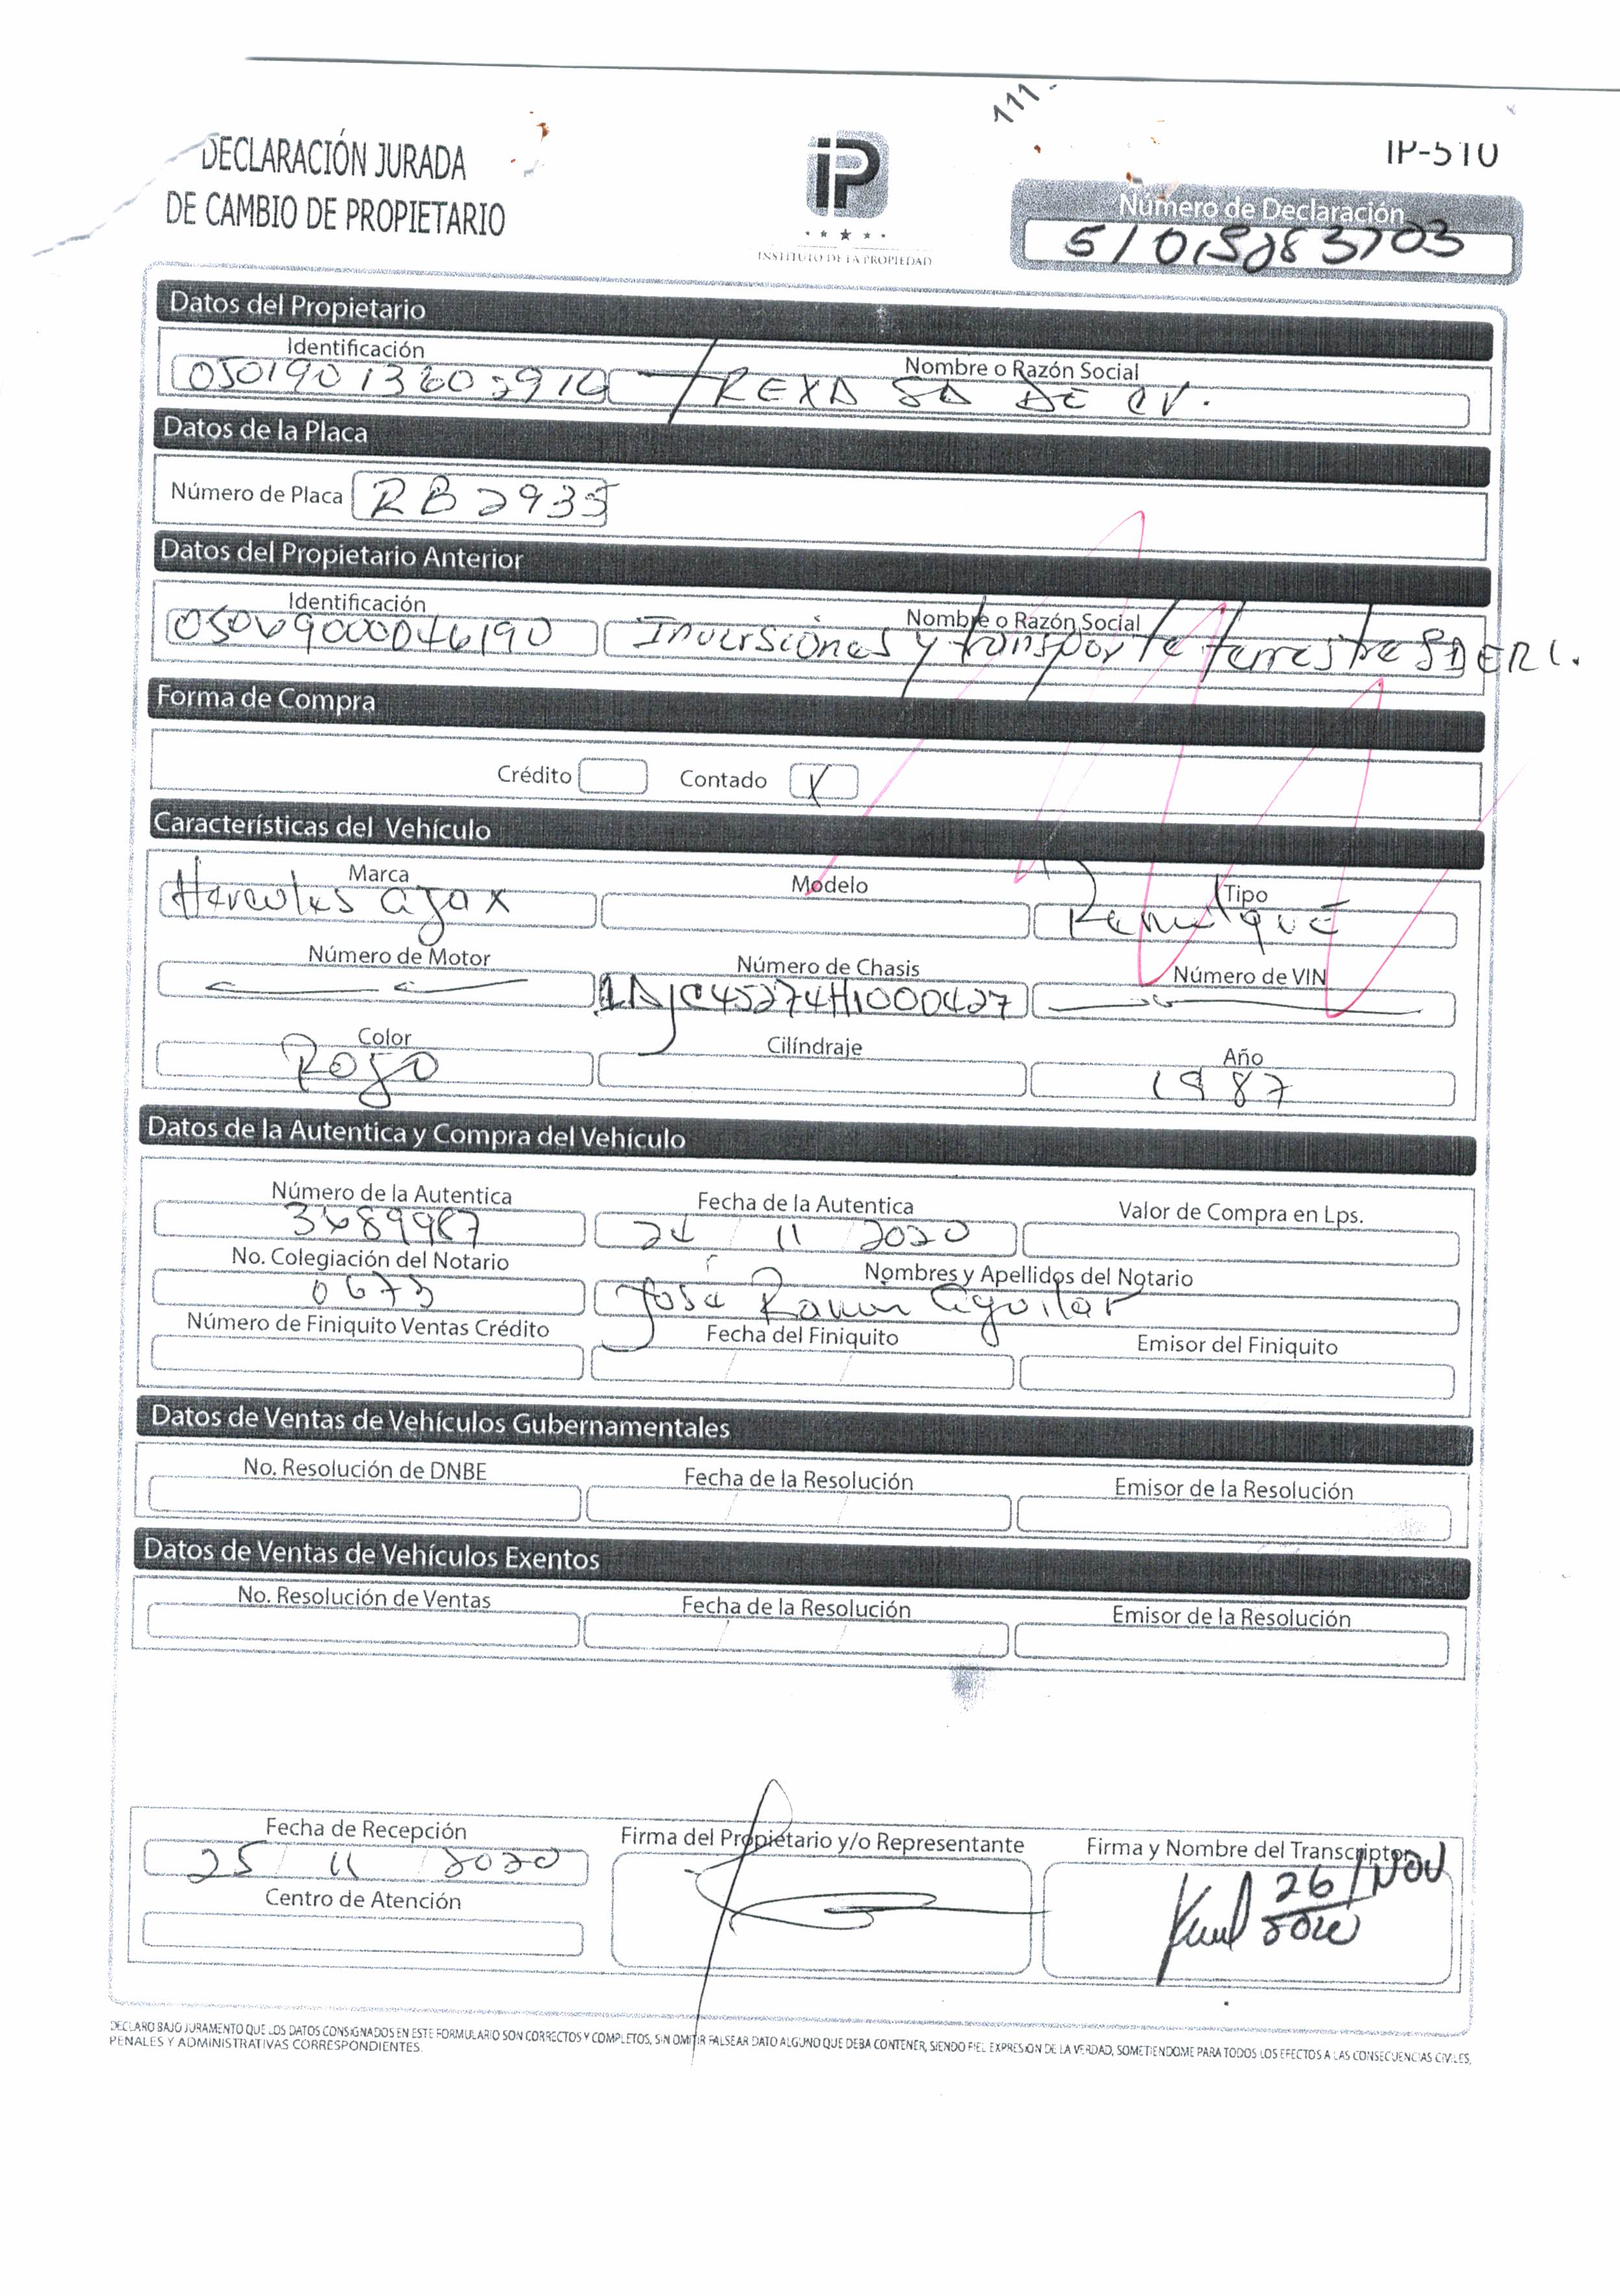 111-
IP-510
DECLARACIÓN JURADA
DE CAMBIO DE PROPIETARIO
iP
INSTITUTO DE LA PROPIEDAD
Número de Declaración
Datos del Propietario
Identificación Nombre o Razón Social
TREXA SA DE CV.
Datos de la Placa
Número de Placa RB2935
Datos del Propietario Anterior
Identificación Nombre o Razón Social
Inversiones y transporte terrestre SDERL.
Forma de Compra
Crédito Contado X
Características del Vehículo
Marca Modelo Tipo
Hercules ajax Remolque
Número de Motor Número de Chasis Número de VIN
Color Cilíndraje Año
Rojo 1987
Datos de la Autentica y Compra del Vehículo
Número de la Autentica Fecha de la Autentica Valor de Compra en Lps.
3689987 24 11 2020
No. Colegiación del Notario Nombres y Apellidos del Notario
0673 José Ramon Aguilar
Número de Finiquito Ventas Crédito Fecha del Finiquito Emisor del Finiquito
Datos de Ventas de Vehículos Gubernamentales
No. Resolución de DNBE Fecha de la Resolución Emisor de la Resolución
Datos de Ventas de Vehículos Exentos
No. Resolución de Ventas Fecha de la Resolución Emisor de la Resolución
Fecha de Recepción Firma del Propietario y/o Representante Firma y Nombre del Transcriptor
25 11 2020 26/NOV
Centro de Atención
DECLARO BAJO JURAMENTO QUE LOS DATOS CONSIGNADOS EN ESTE FORMULARIO SON CORRECTOS Y COMPLETOS, SIN OMITIR FALSEAR DATO ALGUNO QUE DEBA CONTENER, SIENDO FIEL EXPRESION DE LA VERDAD, SOMETIENDOME PARA TODOS LOS EFECTOS A LAS CONSECUENCIAS CIVILES,
PENALES Y ADMINISTRATIVAS CORRESPONDIENTES.